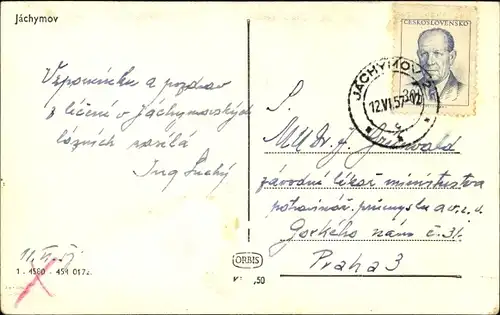 Jáchymov
Vzpomínku a pozdrav
z léčení v Jáchymovských
lázních zasílá
Ing Suchý
1 - 4560 - 454 017
ORBIS
,50
ČESKOSLOVENSKO
JÁCHYMOV
12.VI.57
S.
MUDr. J.
závodní lékař ministerstva
potravinář. průmyslu a v. z. v.
Gorkého nám č. 31.
Praha 3